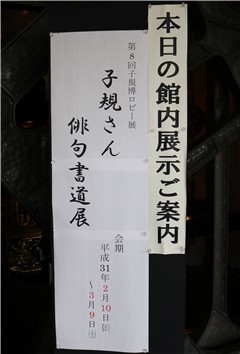 本日の館内展示ご案内
第8回子規博ロビー展
子規さん
俳句書道展
会期
平成31年2月10日(日)
～3月9日(土)